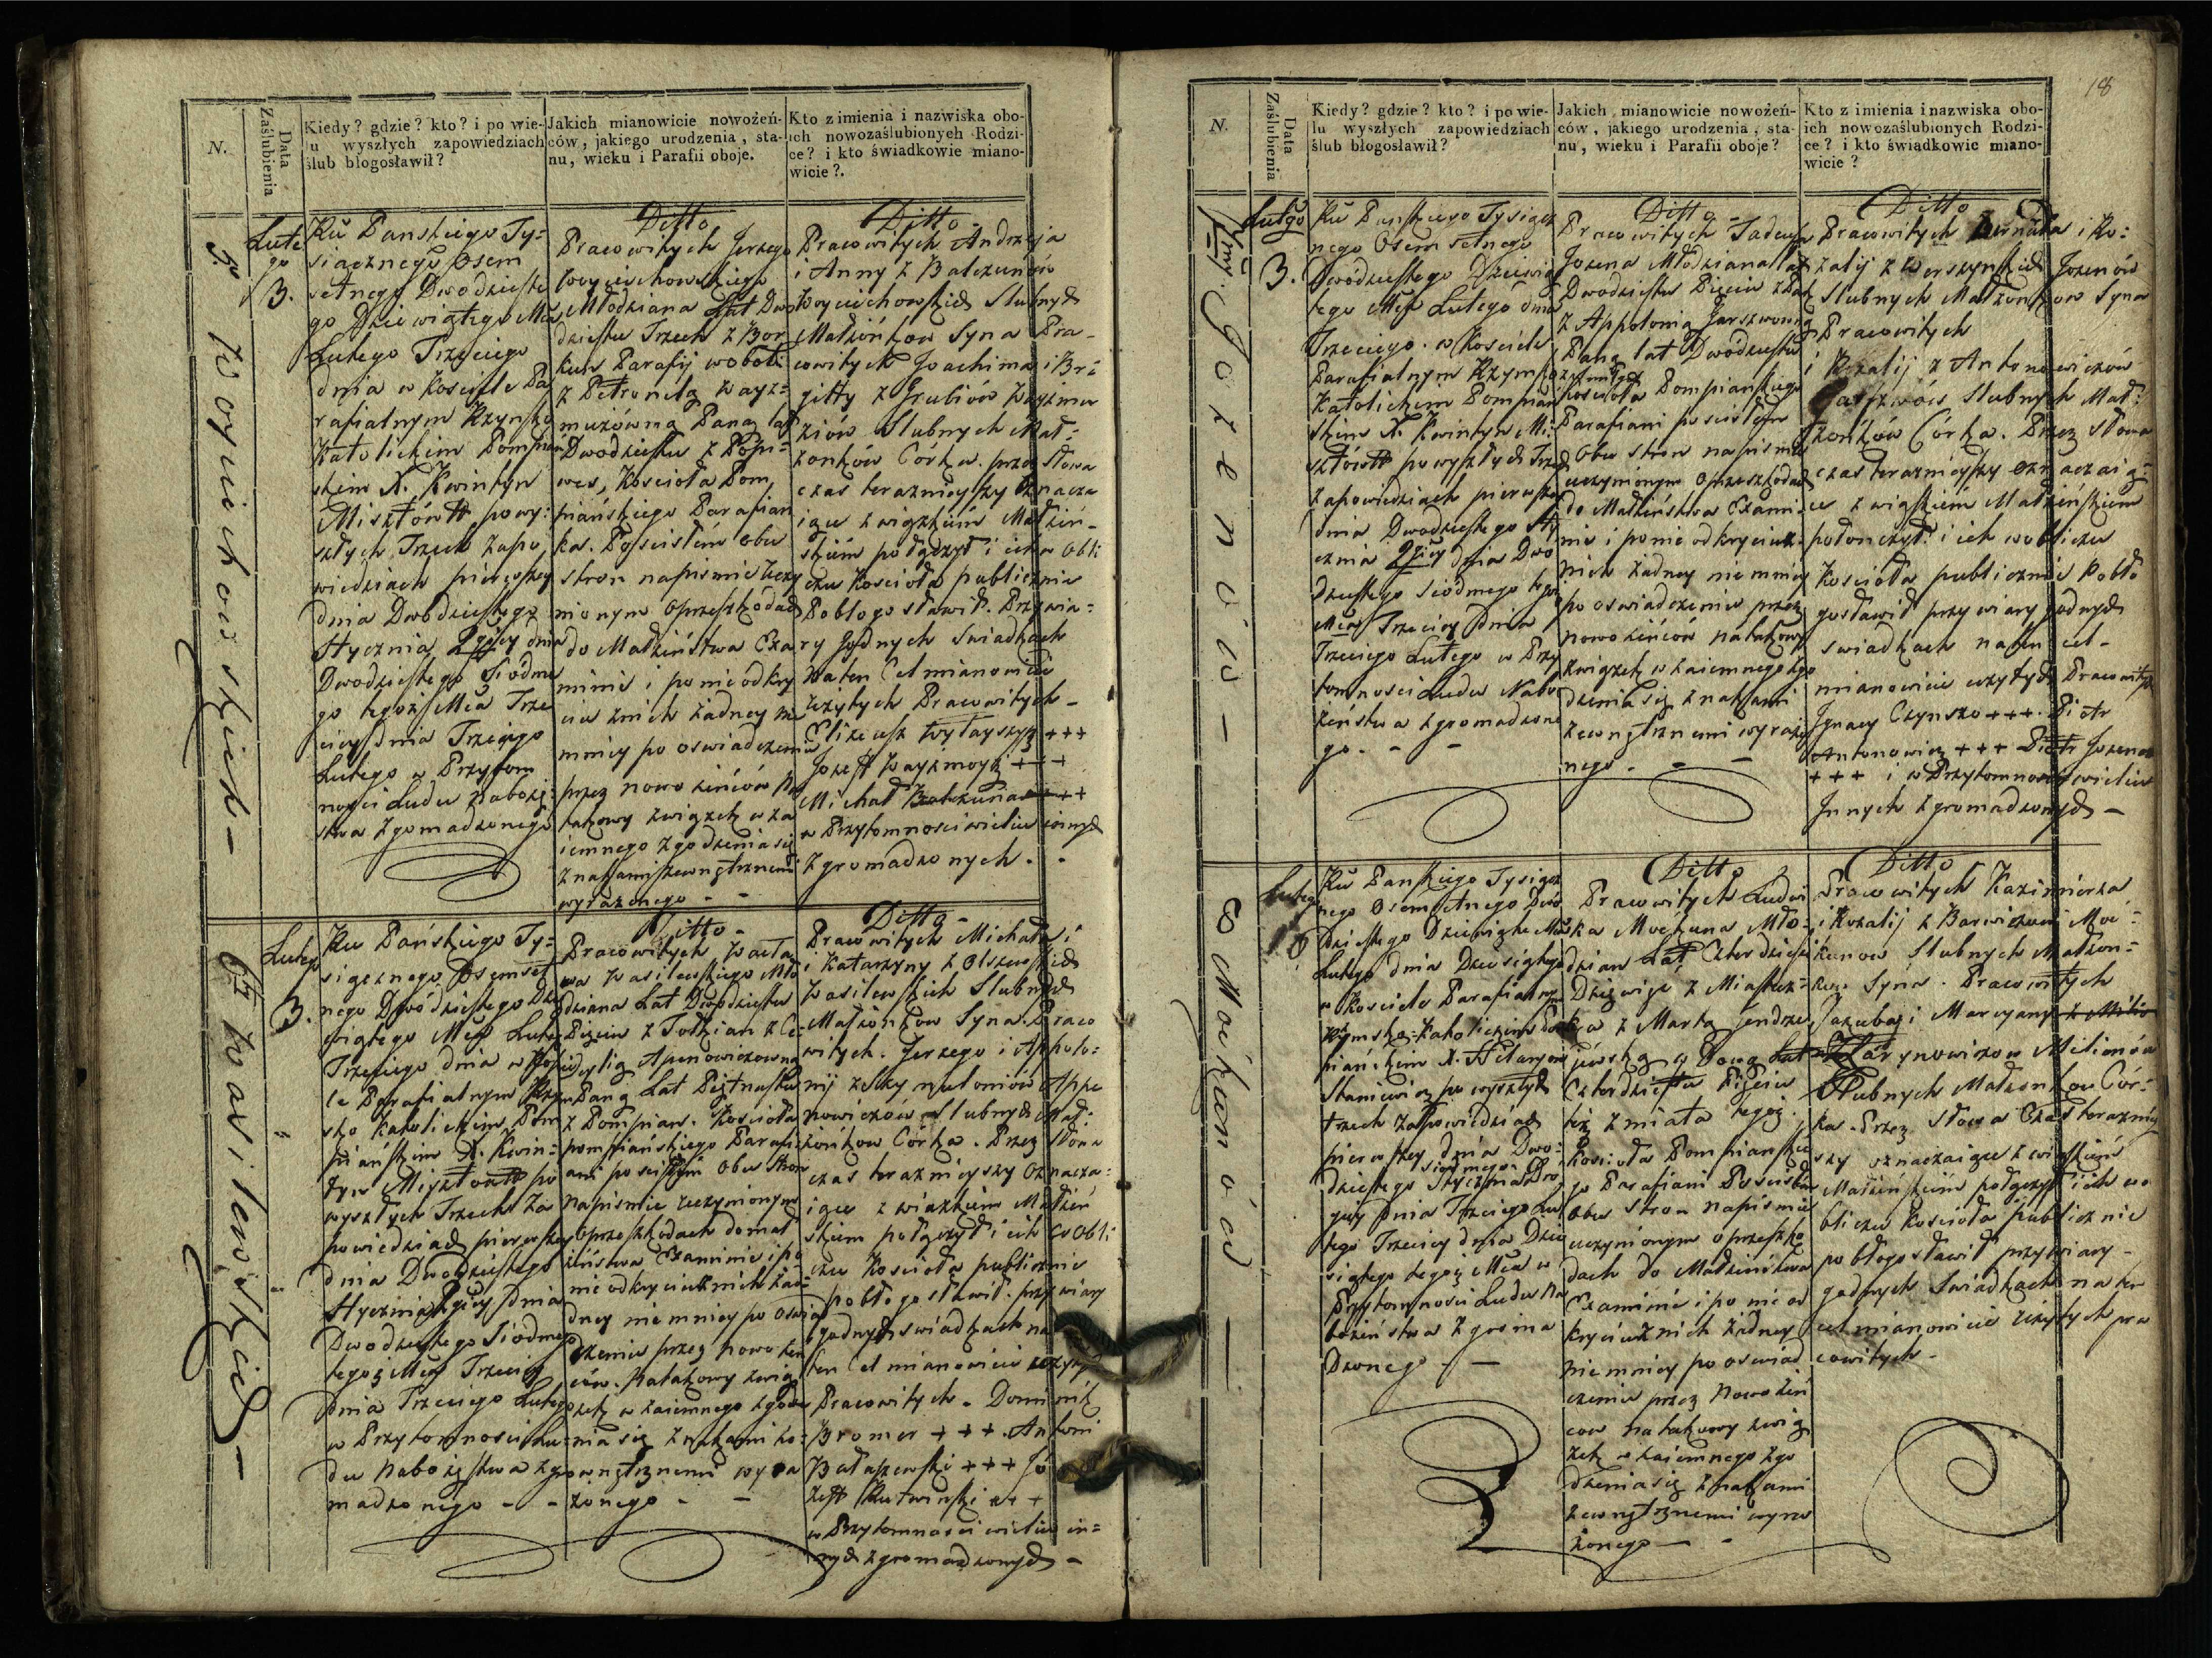 18
N.
Data Zaślubienia
Kiedy? gdzie? kto? i po wie-
lu wyszłych zapowiedziach
ślub błogosławił?
Jakich mianowicie nowożeń-
ców, jakiego urodzenia, sta-
nu, wieku i Parafii oboje.
Kto z imienia i nazwiska obo-
ich nowozaślubionych Rodzi-
ce? i kto świadkowie miano-
wicie?.
5. Woyciechowskich –
Lute
go
3.
Ru Panskiego Ty=
siącznego osem
setnego Dwodzieste
go Dziewiątego Mca
Lutego Trzeciego
dnia w Kosciele Pa
rafialnym Rzymsko
Katolickim Pompian
skim X. Kwintyn
Misztowtt powy:
szłych Trzech Zapo
wiedziach pierwszey
dnia Dwodziestego
Stycznia 2giey dnia
Dwodziestego Siodme
go tegoż Mca Trze
ciey dnia Trzeciego
Lutego w Przytom
nosci Ludu naboże
stwa zgromadzonego
Ditto
Pracowitych Jerzego
Woyciechowskiego
Młodziana Lat Dwo
dziestu Trzech z Bor
kun Parafij
z Petronelą Wayz=
mużówną Panną lat
Dwodziestu z Popi=
wes, Kościoła Pom
piańskiego Parafian
ka. Pościsłém obu
stron napismie uczy
nionym oprzeszkodach
do Małżeństwa Exa
minie i ponieodkry
ciu znich żadney nie
mniey po oswiadczeniu
przez nowożeńców na
takowy związek wza
iemnego zgodzenia się
znakami zewnętrznemi
wyrażonego - -
Ditto -
Pracowitych Andrzeja
i Anny z Balczunów
Woyciechowskich Slubnych
Małżonków Syna Pra-
cowitych Joachima i Bri
gitty z Grubiów Wayzmu
ziow Slubnych Mał=
żonków Córka. przez słowa
czas teraznieyszy oznacza
iące związkiem Małżeń-
skiém połączył i ich w obli
czu Kościoła publicznie
Pobłogosławił. Przy wia=
ry godnych swiadkach
na ten cel mianowicie
użytych Pracowitych -
Elizeusz +++
Józeff Wayzmoyź +++
Michał Balczunas +++
w Przytomnosci wielu innych
Zgromadzonych. -
6ty Wasilewskich –
Lutego
3.
Ru Pańskiego Ty=
siącznego Osemset
nego Dwódziestego Dzie
wiątego Mca Lutego
Trzeciego dnia w Kos
ciele Parafialnym Rzym
sko Katolickim Pom
piańskim X. Kwin=
tyn Misztowtt po
wyszłych Trzech Za
powiedziach pierwszey
dnia Dwodziestego
Stycznia 2giey dnia
Dwodziestego Siódmego
tegoż Mca Trzeciey
dnia Trzeciego Lutego
w Przytomnosci Lu
du Nabożeństwa zgro
madzonego - -
Ditto -
Pracowitych Wacła
wa Wasilewskiego Mło
dziana Lat Dwodziestu
Pięciu z z Ce
cylią Apanowiczowną
Panną Lat Piętnastu
z Pompian. Kościoła
pompiańskiego Parafi
ani po scisłym Obu Stron
Napismie uczynionym
oprzeszkodach do mał
żeństwa Examinie i po
nieodkryciu znich żad=
dney niemniey po oswiad
czeniu przez nowożeń
ców. Natakowy zwią
zek wzaiemnego zgodze
nia się znakami ze=
wnętrznemi wyra
żonego - -
Ditto -
Pracowitych Michała
i Katarzyny z Olszewskich
Wasilewskich Slubnych
Małżonkow Syna. Praco
witych. Jerzego i Appolo=
nij z Szymutoniów Appa
nowiczów Slubnych Mał=
żonkow Córka. Przez słowa
czas teraznieyszy oznacza=
iące związkiem Małżeń
skiem połączył i ich w obli
czu Kościoła publicznie
pobłogosławił. przy wiary
godnych swiadkach na
ten cel mianowicie użytych
Pracowitych. Dominik
Bromer +++. Antoni
Bałaszewski +++ Jó
zeff Rutwinski +++
w Przytomnosci wielu in=
nych zgromadzonych –
N.
Data Zaślubienia
Kiedy? gdzie? kto? i po wie-
lu wyszłych zapowiedziach
ślub błogosławił?
Jakich mianowicie nowożeń-
ców, jakiego urodzenia, sta-
nu, wieku i Parafii oboje?
Kto z imienia i nazwiska obo-
ich nowozaślubionych Rodzi-
ce? i kto świadkowie miano-
wicie?
7my Jozenów –
Lutgo
3.
Ru Panskiego Tysiącz
nego Osemsetnego
Dwódziestego Dziewią
tego Mca Lutego dnia
Trzeciego. w Kosciele
Parafialnym Rzymsko
Katolickim Pompian
skim X. Kwintyn Mi=
sztowtt po wyszłych Trzech
Zapowiedziach pierwszey
dnia Dwodziestego Sty
cznia 2giey dnia Dwo
dziestego Siódmego tegoż
Mca Trzeciey dnia
Trzeciego Lutego w Przy
tomnosci Ludu Nabo
żeństwa zgromadzone
go. - -
Ditto -
Pracowitych Tadeusza
Jozena Młodziana lat
Dwodziestu Pięciu
z Appolonią Jarszwowną
Panną lat Dwódziestu
Kościoła Pompiańskiego
Parafiani po scisłym
Obu stron napismie
uczynionym oprzeszkodach
do Małżeństwa Exami
nie i ponieodkryciu z
nich żadney niemniey
po oswiadczeniu przez
nowożeńców natakowy
związek wzaiemnego zgo
dzenia się znakami
zewnętrznemi wyrażo
nego. - -
Ditto
Pracowitych Donata i Ro=
zalij z Werszynskich Jozenów
Slubnych Małżonkow Syna
Pracowitych
i Rozalij z Antonowiczów
Jarszwów Slubnych Mał=
żonków Córka. Przez słowa
czas teraznieyszy oznaczaią=
ce związkiem Małżeńskiem
połonczył i ich wobliczu
Kościoła publicznie pobło
gosławił przy wiary godnych
swiadkach na ten cel -
mianowicie użytych Pracowitych
Ignacy Czynszo +++. Piotr
Antonowicz +++ Piotr Jozenas
+++ i w Przytomnosci wielu
Innych zgromadzonych –
8 Moćkunów –
Lutego
Ru Panskiego Tysiącz
nego Osemsetnego Dwó
dziestego Dziewiąte Mca
Lutego dnia Dziesiątego
w Kosciele Parafialnym
Rzymsko-Katolickim Pom
piańskim X. Hilaryon
Staniewicz po wyszłych
trzech Zapowiedziach
pierwszey dnia Dwo=
dziestego siódmego Stycznia Dru
giey dnia Trzeciego Lu
tego Trzeciey dnia Dzie
siątego tegoż Mca w
Przytomnosci Ludu Na
bożeństwa zgroma
dzonego - –
Ditto
Pracowitych Ludwi
ka Moćkuna Mło=
dzian Lat Czterdziestu
z
Dziewięć z Miastecz=
ka z Martą Jendrze
jewską Wdową Lat
Czterdziestu Pięciu
też z miasta tegoż.
Kościoła Pompianskie
go Parafiani Poscisłem
Obu Stron napismie
uczynionym oprzeszko
dach do Małżeństwa
Examinie i po nieod
kryciu znich żadney
niemniey po oswiad
czeniu przez Nowożeń
cow natakowy zwią
zek wzaiemnego zgo
dzenia się znakami
zewnętrznemi wyra
żonego –
Ditto
Pracowitych Kazimierza
i Rozalij z Barwiczow Moć=
kunow Slubnych Małżon=
kow Syna. Pracowitych
Jakuba i Maryany
Slubnych Małżonkow Cór=
ka. Przez słowa Czas terazniey
szy oznaczaiące związkiem
Małżeńskiém połączył i ich wo
bliczu Kościoła publicznie
pobłogosławił przy wiary -
godnych swiadkach na ten
cel mianowicie użytych pra
cowitych -